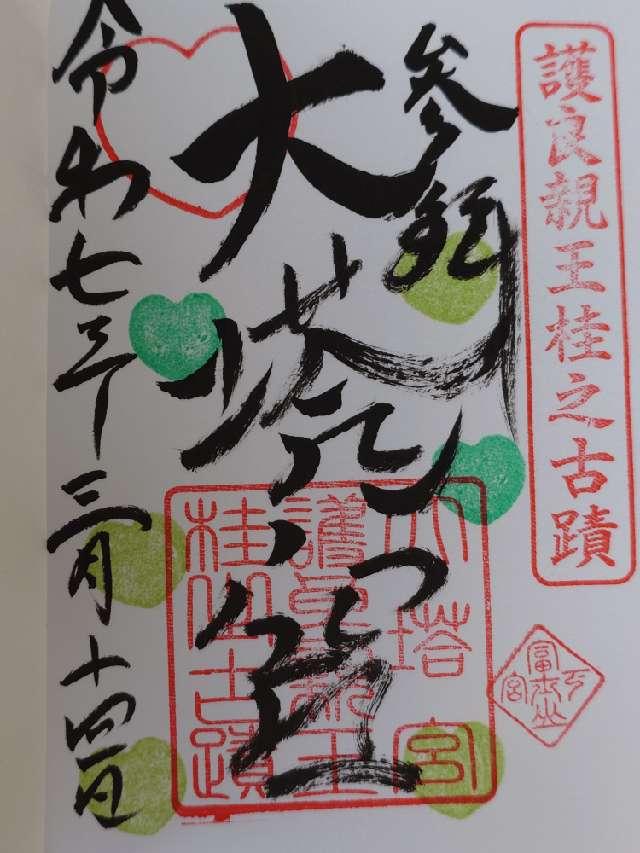 護良親王桂之古蹟
大塔宮
大塔宮
護良親王
桂之古蹟
富士山
下宮
令和七年三月十四日